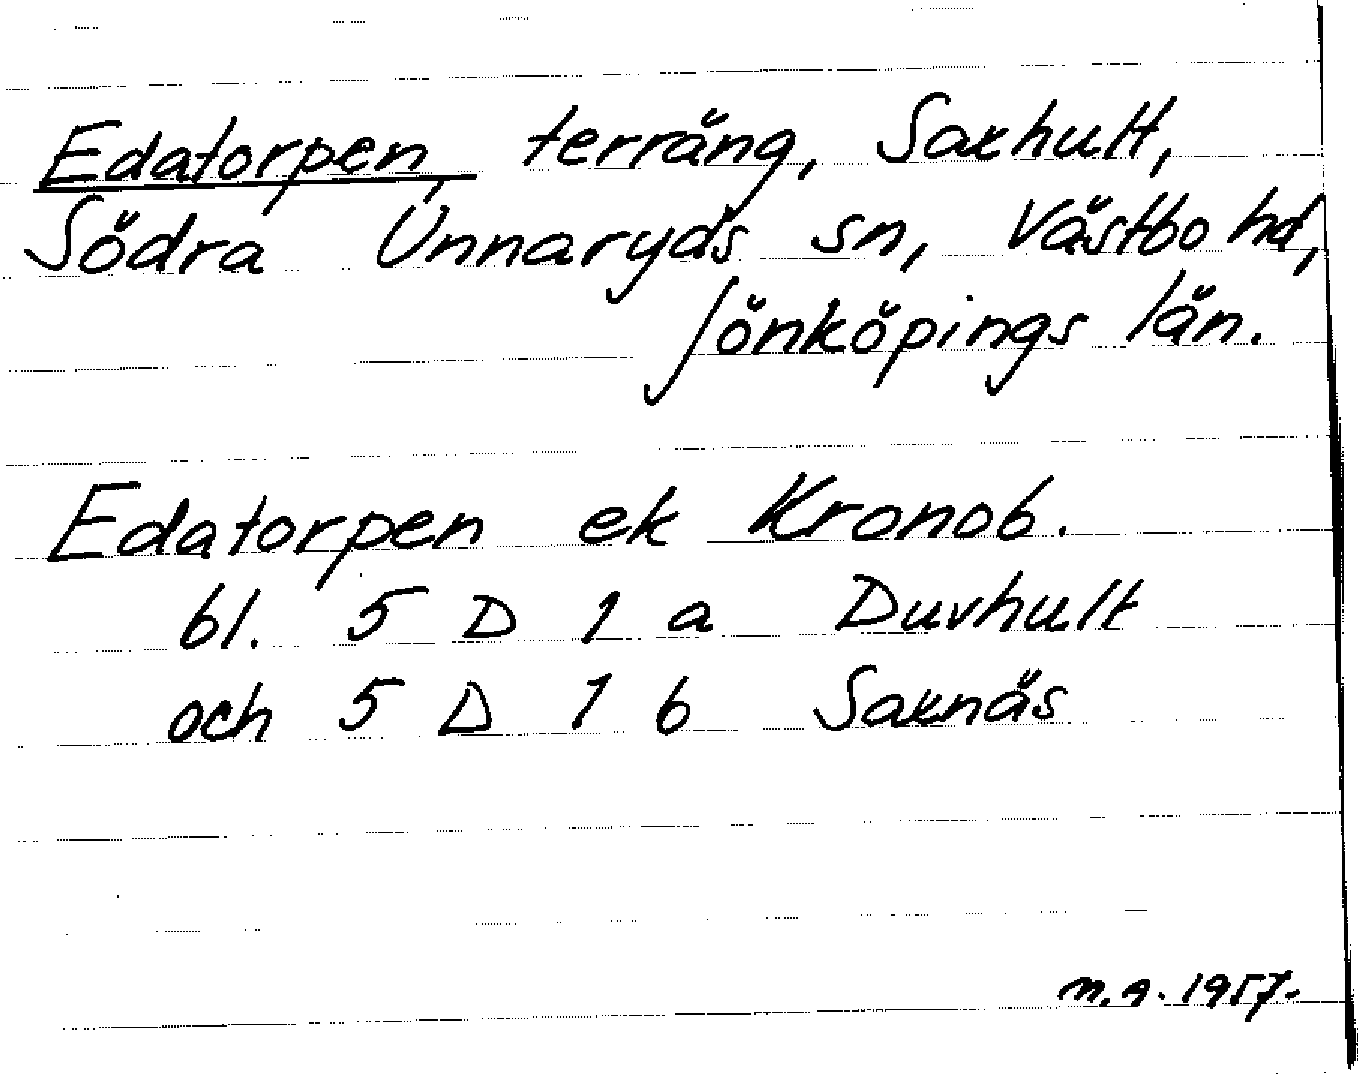 Edatorpen, terräng, Saxhult,
Södra Unnaryds sn, Västbo hd,
Jönköpings län.
Edatorpen ek Kronob.
bl. 5 D 1 a Duvhult
och 5 D 1 b Saxnäs
M.A. 1957.